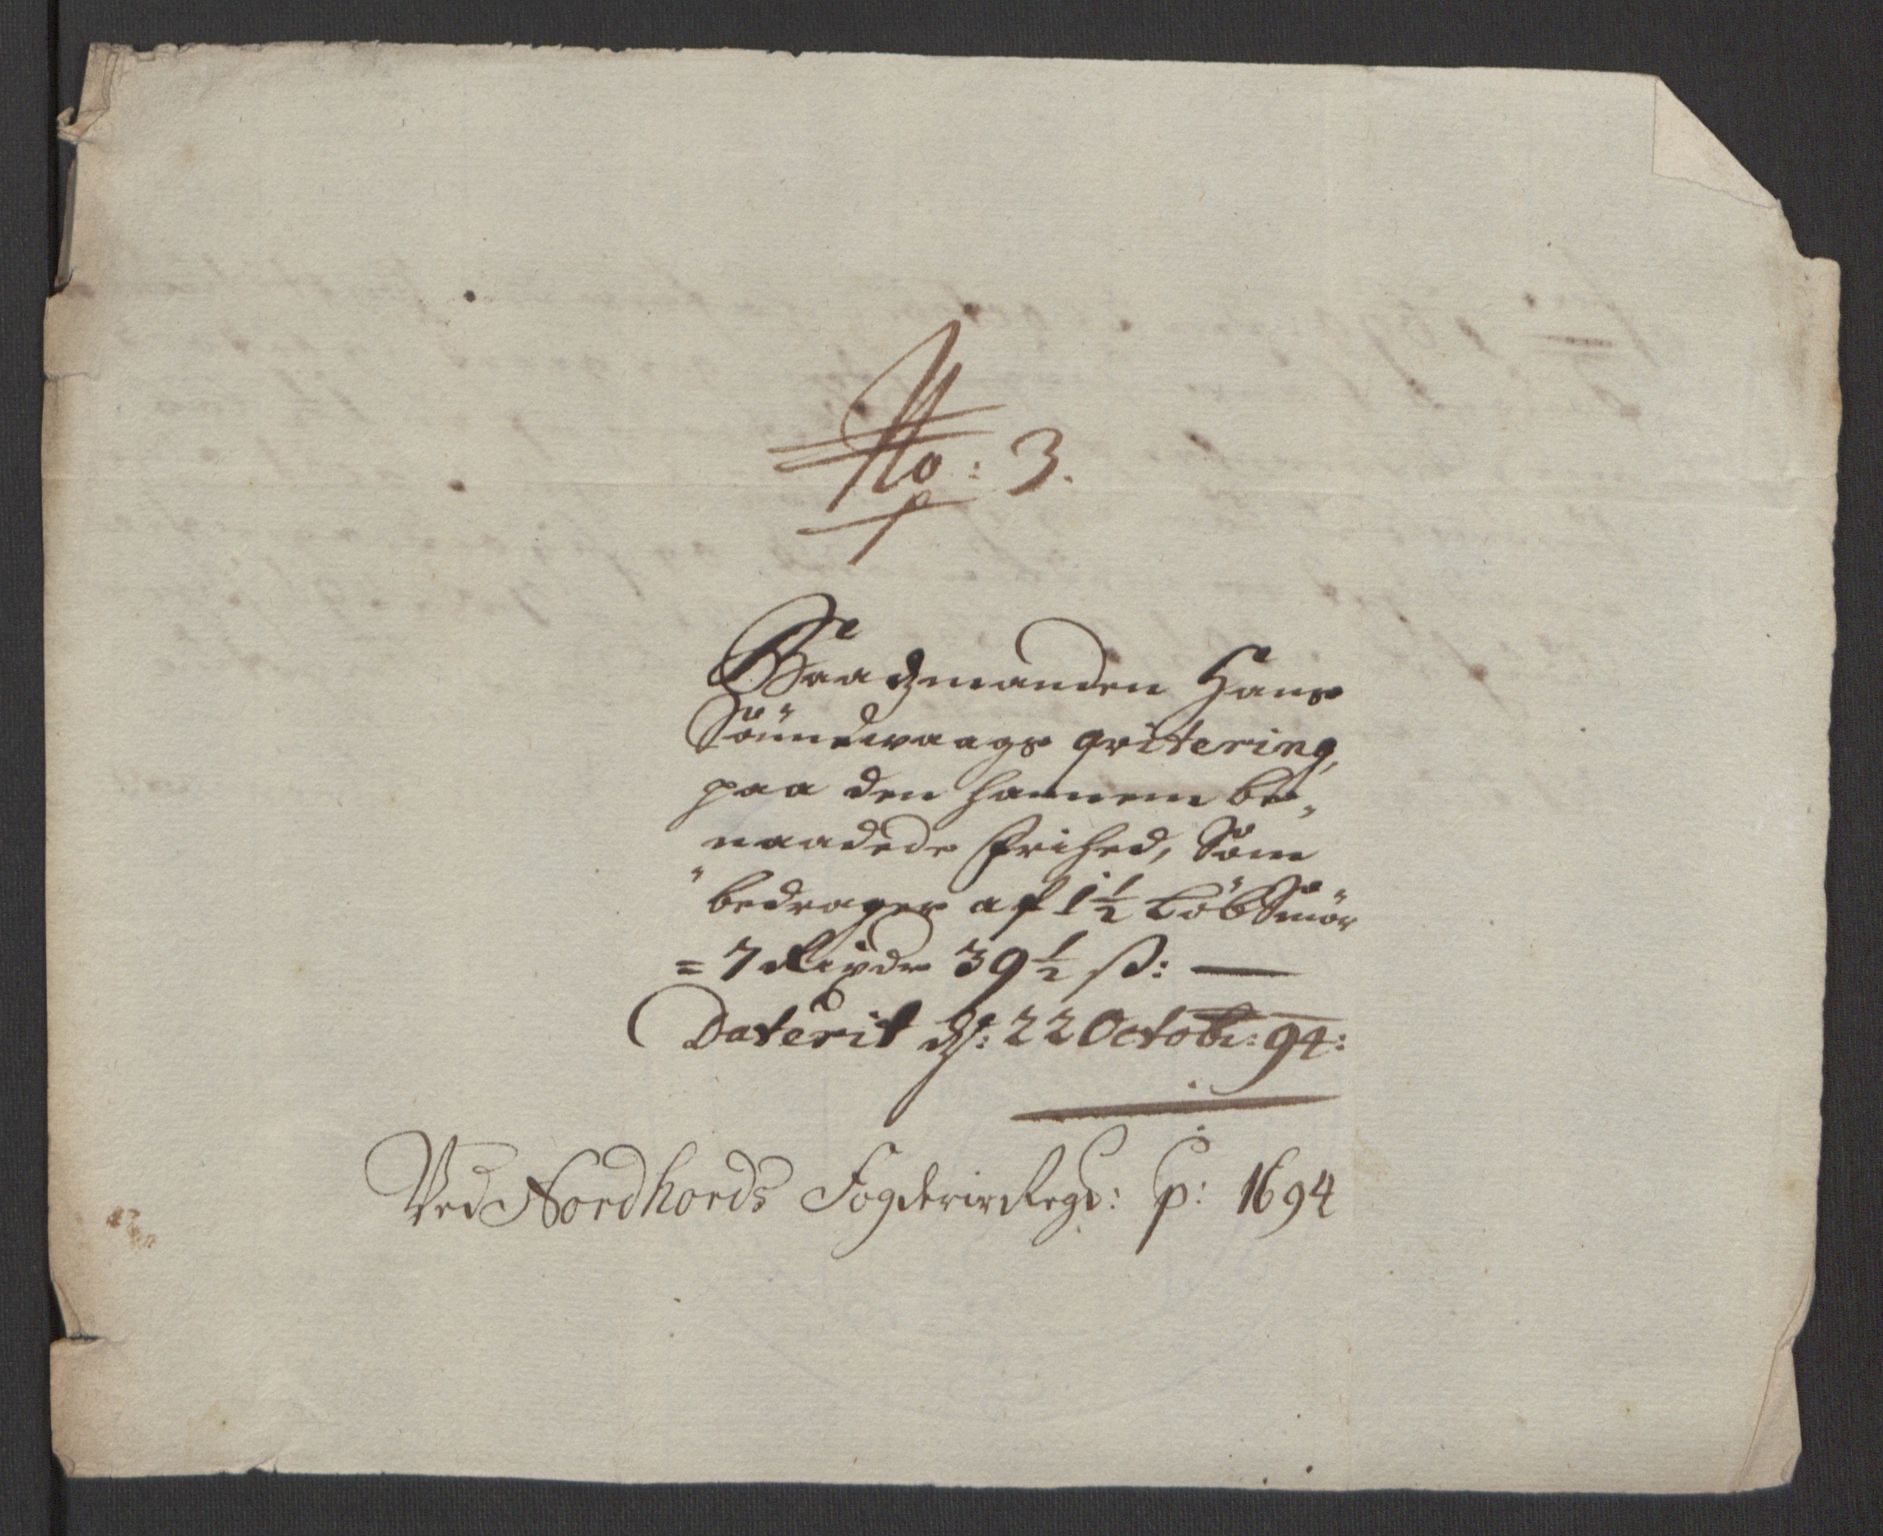 No: 3.
Baadzmanden Hans
Sündevaags qvitering,
paa den hannem be-
naadede Frihed, Som
bedrager af 1½ Löb Smör
= 7 Rixdr 39½ ß: —
Daterit d: 22 Octobr: 94:
Ved Nordhords Fogderie Regs: p: 1694